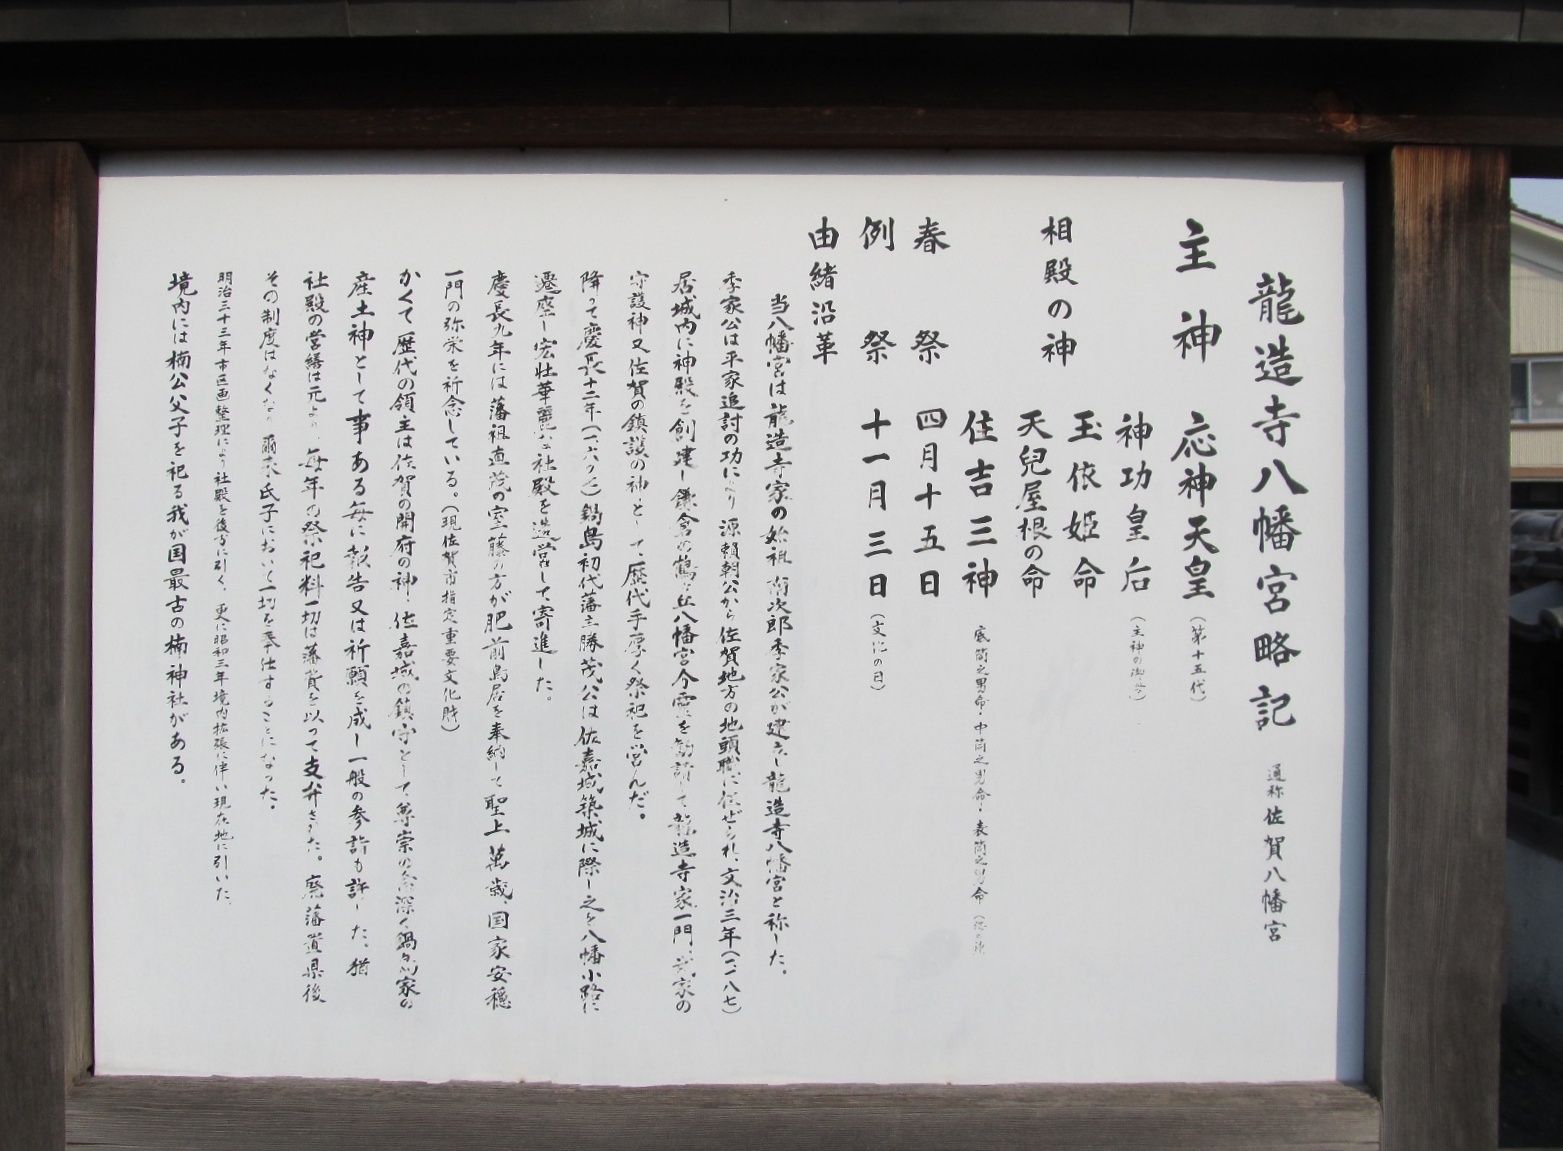 龍造寺八幡宮略記 通称 佐賀八幡宮
主神 応神天皇(第十五代)
神功皇后(主神の御母)
相殿の神 玉依姫命
天兒屋根の命
住吉三神 底筒之男命・中筒之男命・表筒之男命
春祭 四月十五日
例祭 十一月三日(文化の日)
由緒沿革
当八幡宮は龍造寺家の始祖 南次郎季家公が建立し龍造寺八幡宮と称した。
季家公は平家追討の功により 源頼朝公から佐賀地方の地頭職に任ぜられ、文治三年(一一八七)
居城内に神殿を創建し鎌倉の鶴ヶ丘八幡宮分霊を勧請して龍造寺家一門、武家の
守護神又佐賀の鎮護の神として、歴代手厚く祭祀を営んだ。
降って慶長十二年(一六〇七)鍋島初代藩主勝茂公は佐嘉城築城に際し之を八幡小路に
遷座し宏壮華麗な社殿を造営して寄進した。
慶長九年には藩祖直茂の室藤の方が肥前鳥居を奉納して聖上萬歳、国家安穏
一門の弥栄を祈念している。(現佐賀市指定重要文化財)
かくて歴代の領主は佐賀の開府の神・佐嘉城の鎮守として尊崇の念深く鍋島家の
産土神として事ある毎に報告又は祈願を成し一般の参詣も許した、猶
社殿の営繕は元より、毎年の祭祀料一切は藩費を以って支弁された。廃藩置県後
その制度はなくなり 爾来氏子において一切を奉仕することになった。
明治三十三年市区画整理により社殿を後方に引く、更に昭和三年境内拡張に伴い現在地に引いた。
境内には楠公父子を祀る我が国最古の楠神社がある。